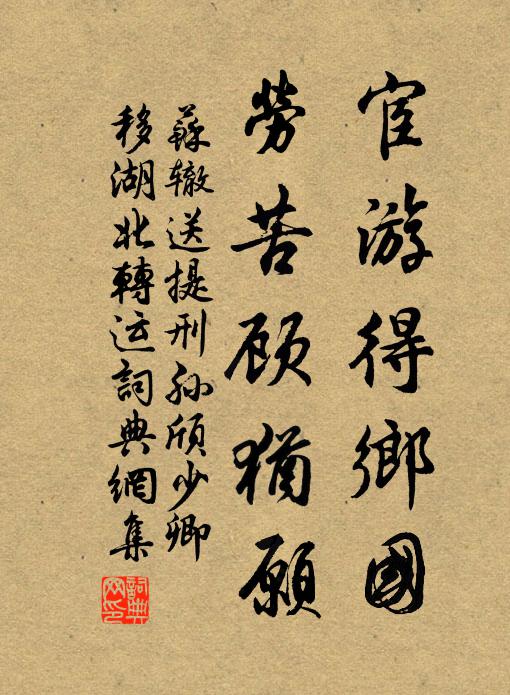 宦游得鄉國
勞苦顧猶願
蘇辙送提刑孙頎少卿
移湖北轉运詞典網集
詞典网印